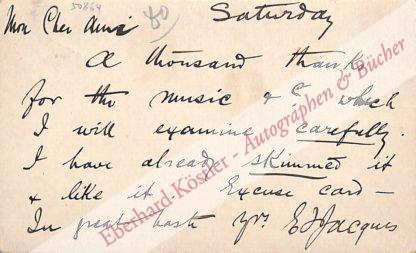 50864
80
Saturday
Mon Cher Ami
A thousand thanks
for the music & c which
I will examine carefully.
I have already skimmed it
& like it. Excuse card —
In great haste Yrs E J Jacques
Eberhard Köstler - Autographen & Bücher